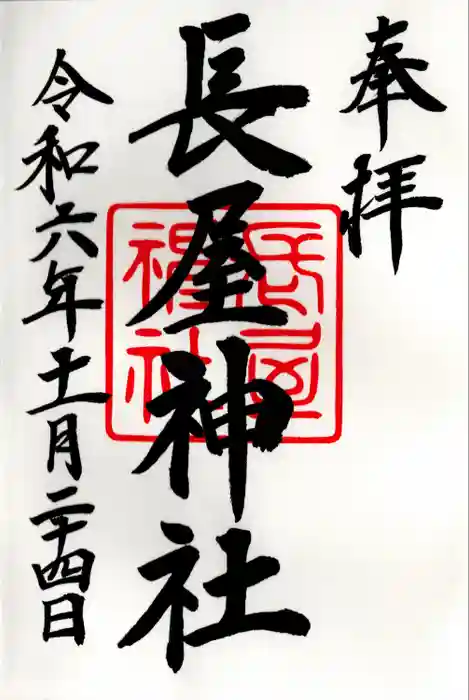 奉拝
長屋神社
長屋
神社
令和六年十一月二十四日